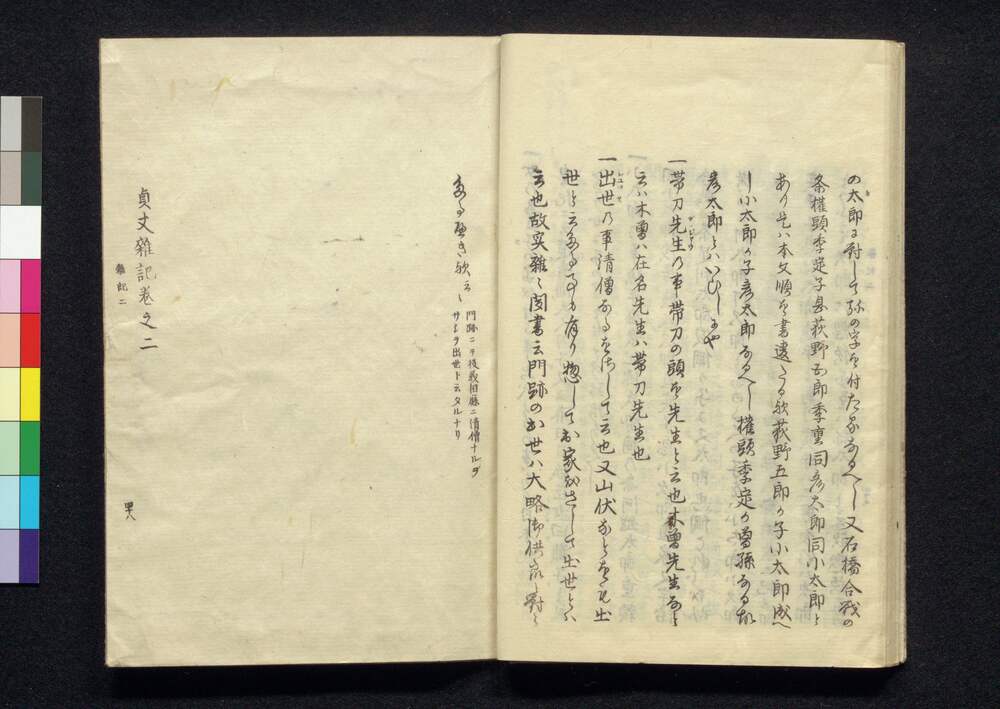 の太郎に対して弥の字を付たるなるへし又石橋合戦の
条権頭季定子息荻野五郎季重同彦太郎同小太郎と
あり是ハ本文順を書違たる歟荻野五郎か子小太郎成へ
し小太郎か子彦太郎なるへし権頭季定か曽孫なる故
彦太郎とハいひしにや
一帯刀先生の事帯刀の頭を先生と云也木曽先生なと
云ハ木曽ハ在名先生ハ帯刀先生也
一出世の事清僧なるをさして云也又山伏なとをも出
世と云なる事有り惣して出家をさして出世とハ
云也故実雑々聞書云門跡の出世ハ大略御供衆に対し
あるへき歟云々
門跡ニテ後戒旧臈ニ清僧ナルヲ
サシテ出世ト云タルナリ
貞丈雑記巻之二
雑記二